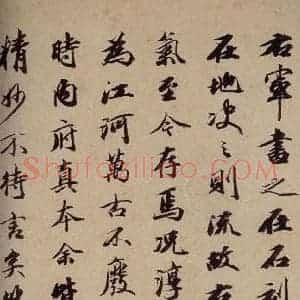 右軍書之在石刻
在地决之則流故
氣至今存焉況淳
為江河萬古不廢
時內府真本余
精妙不待言矣